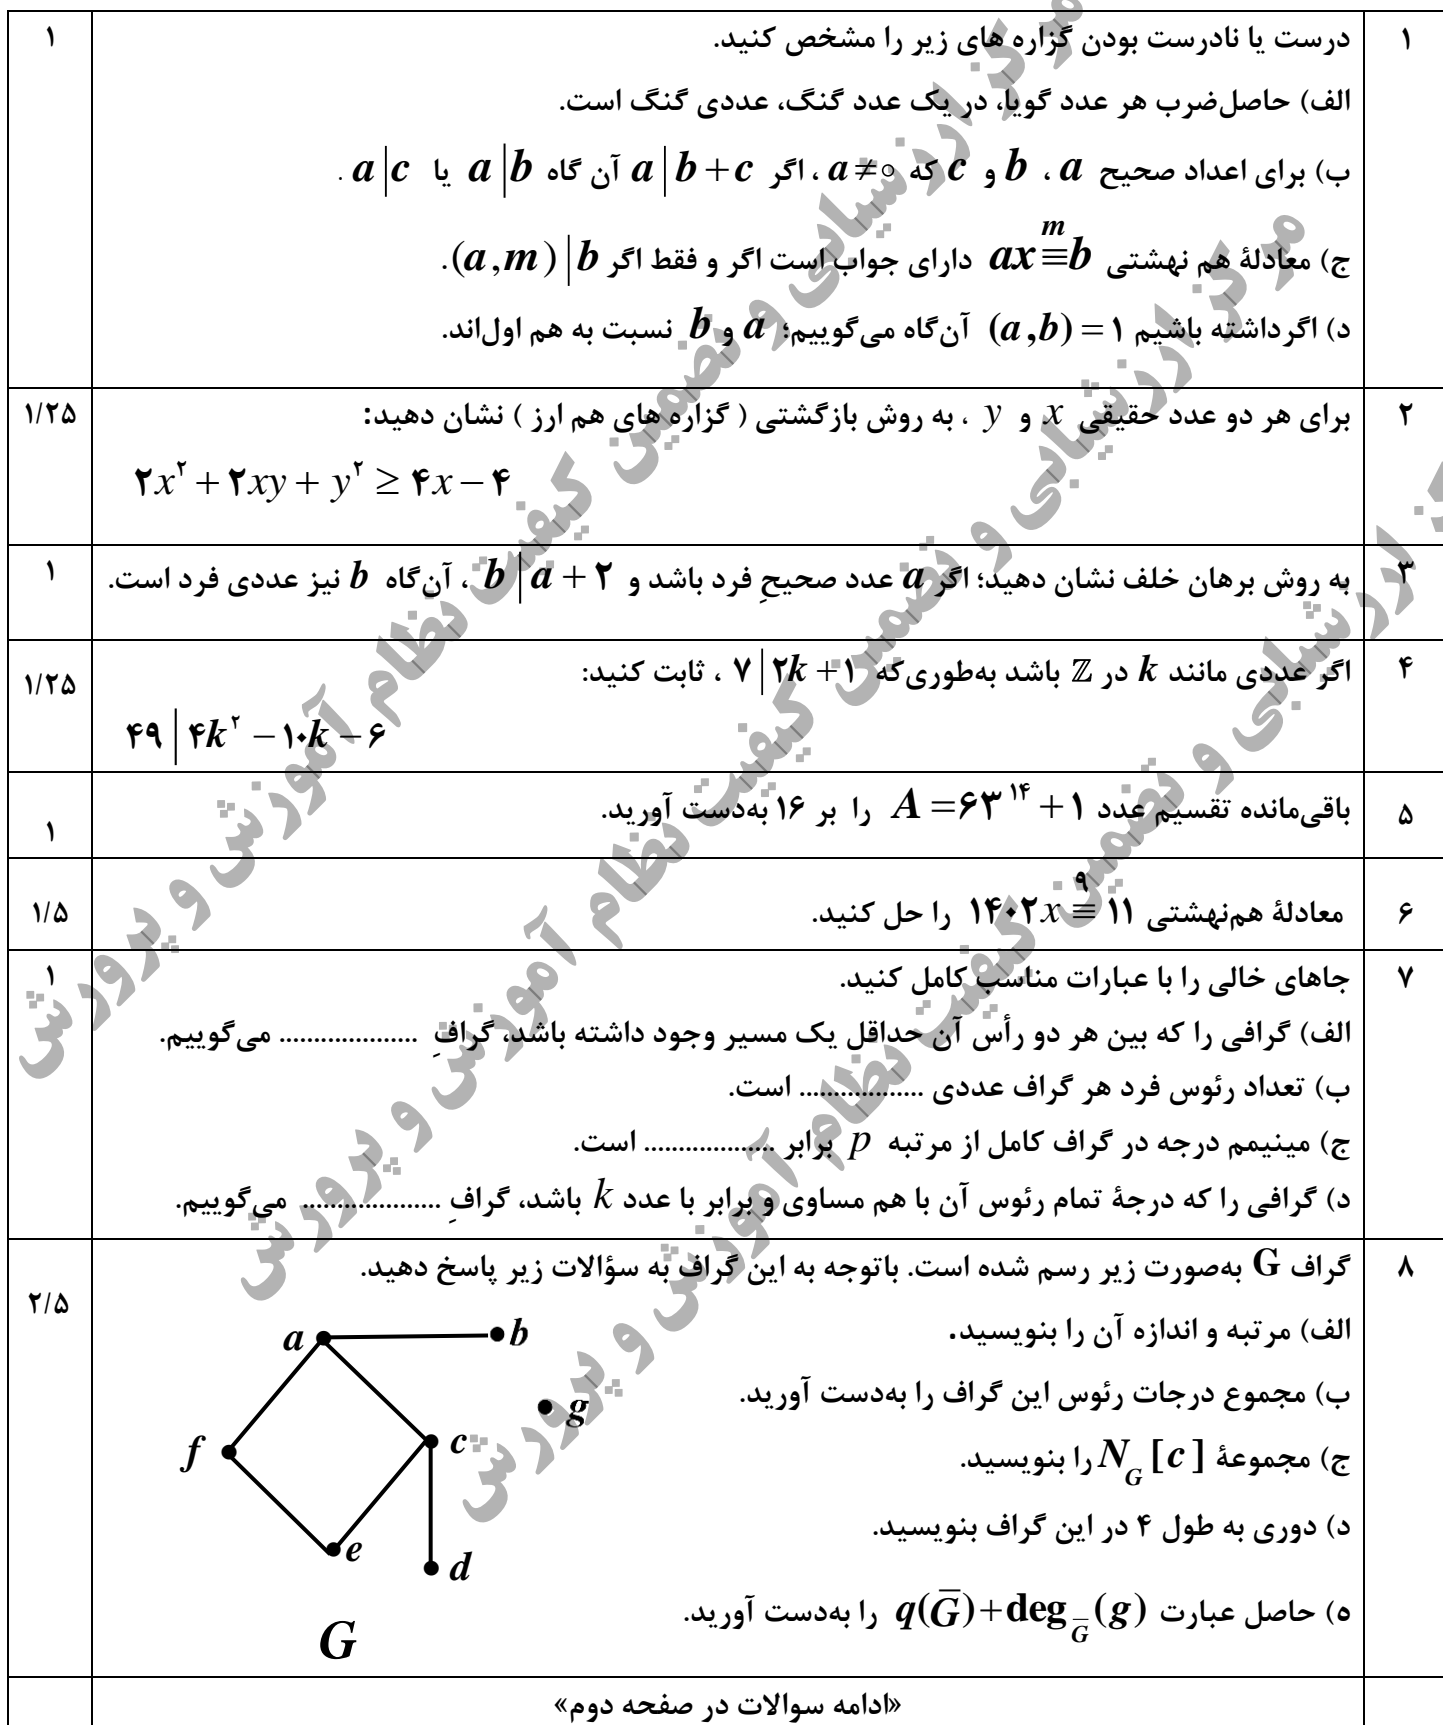 ۱ درست یا نادرست بودن گزاره های زیر را مشخص کنید. ۱
الف) حاصل‌ضرب هر عدد گویا، در یک عدد گنگ، عددی گنگ است.
ب) برای اعداد صحیح a ، b و c که a ≠ ۰ ، اگر a | b + c آن گاه a | b یا a | c .
ج) معادلۀ هم نهشتی ax ≡ b (m) دارای جواب است اگر و فقط اگر (a, m) | b.
د) اگرداشته باشیم (a, b) = ۱ آن‌گاه می‌گوییم؛ a و b نسبت به هم اول‌اند.
۲ برای هر دو عدد حقیقی x و y ، به روش بازگشتی ( گزاره های هم ارز ) نشان دهید: ۱/۲۵
۲x² + ۲xy + y² ≥ ۴x − ۴
۳ به روش برهان خلف نشان دهید؛ اگر a عدد صحیحِ فرد باشد و b | a + ۲ ، آن‌گاه b نیز عددی فرد است. ۱
۴ اگر عددی مانند k در ℤ باشد به‌طوری‌که ۷ | ۲k + ۱ ، ثابت کنید: ۱/۲۵
۴۹ | ۴k² − ۱۰k − ۶
۵ باقی‌مانده تقسیم عدد A = ۶۳¹⁴ + ۱ را بر ۱۶ به‌دست آورید. ۱
۶ معادلۀ هم‌نهشتی ۱۴۰۲x ≡ ۱۱ (۹) را حل کنید. ۱/۵
۷ جاهای خالی را با عبارات مناسب کامل کنید. ۱
الف) گرافی را که بین هر دو رأس آن حداقل یک مسیر وجود داشته باشد، گرافِ .................... می‌گوییم.
ب) تعداد رئوس فرد هر گراف عددی .................. است.
ج) مینیمم درجه در گراف کامل از مرتبه p برابر ................... است.
د) گرافی را که درجۀ تمام رئوس آن با هم مساوی و برابر با عدد k باشد، گرافِ .................... می‌گوییم.
۸ گراف G به‌صورت زیر رسم شده است. باتوجه به این گراف به سؤالات زیر پاسخ دهید. ۲/۵
الف) مرتبه و اندازه آن را بنویسید.
ب) مجموع درجات رئوس این گراف را به‌دست آورید.
ج) مجموعۀ N_G [c] را بنویسید.
د) دوری به طول ۴ در این گراف بنویسید.
ه) حاصل عبارت q(G̅) + deg_G̅ (g) را به‌دست آورید.
a
b
g
f
c
e
d
G
«ادامه سوالات در صفحه دوم»
مرکز ارزشیابی و تضمین کیفیت نظام آموزش و پرورش
مرکز ارزشیابی و تضمین کیفیت نظام آموزش و پرورش
ارزشیابی و تضمین کیفیت نظام آموزش و پرورش